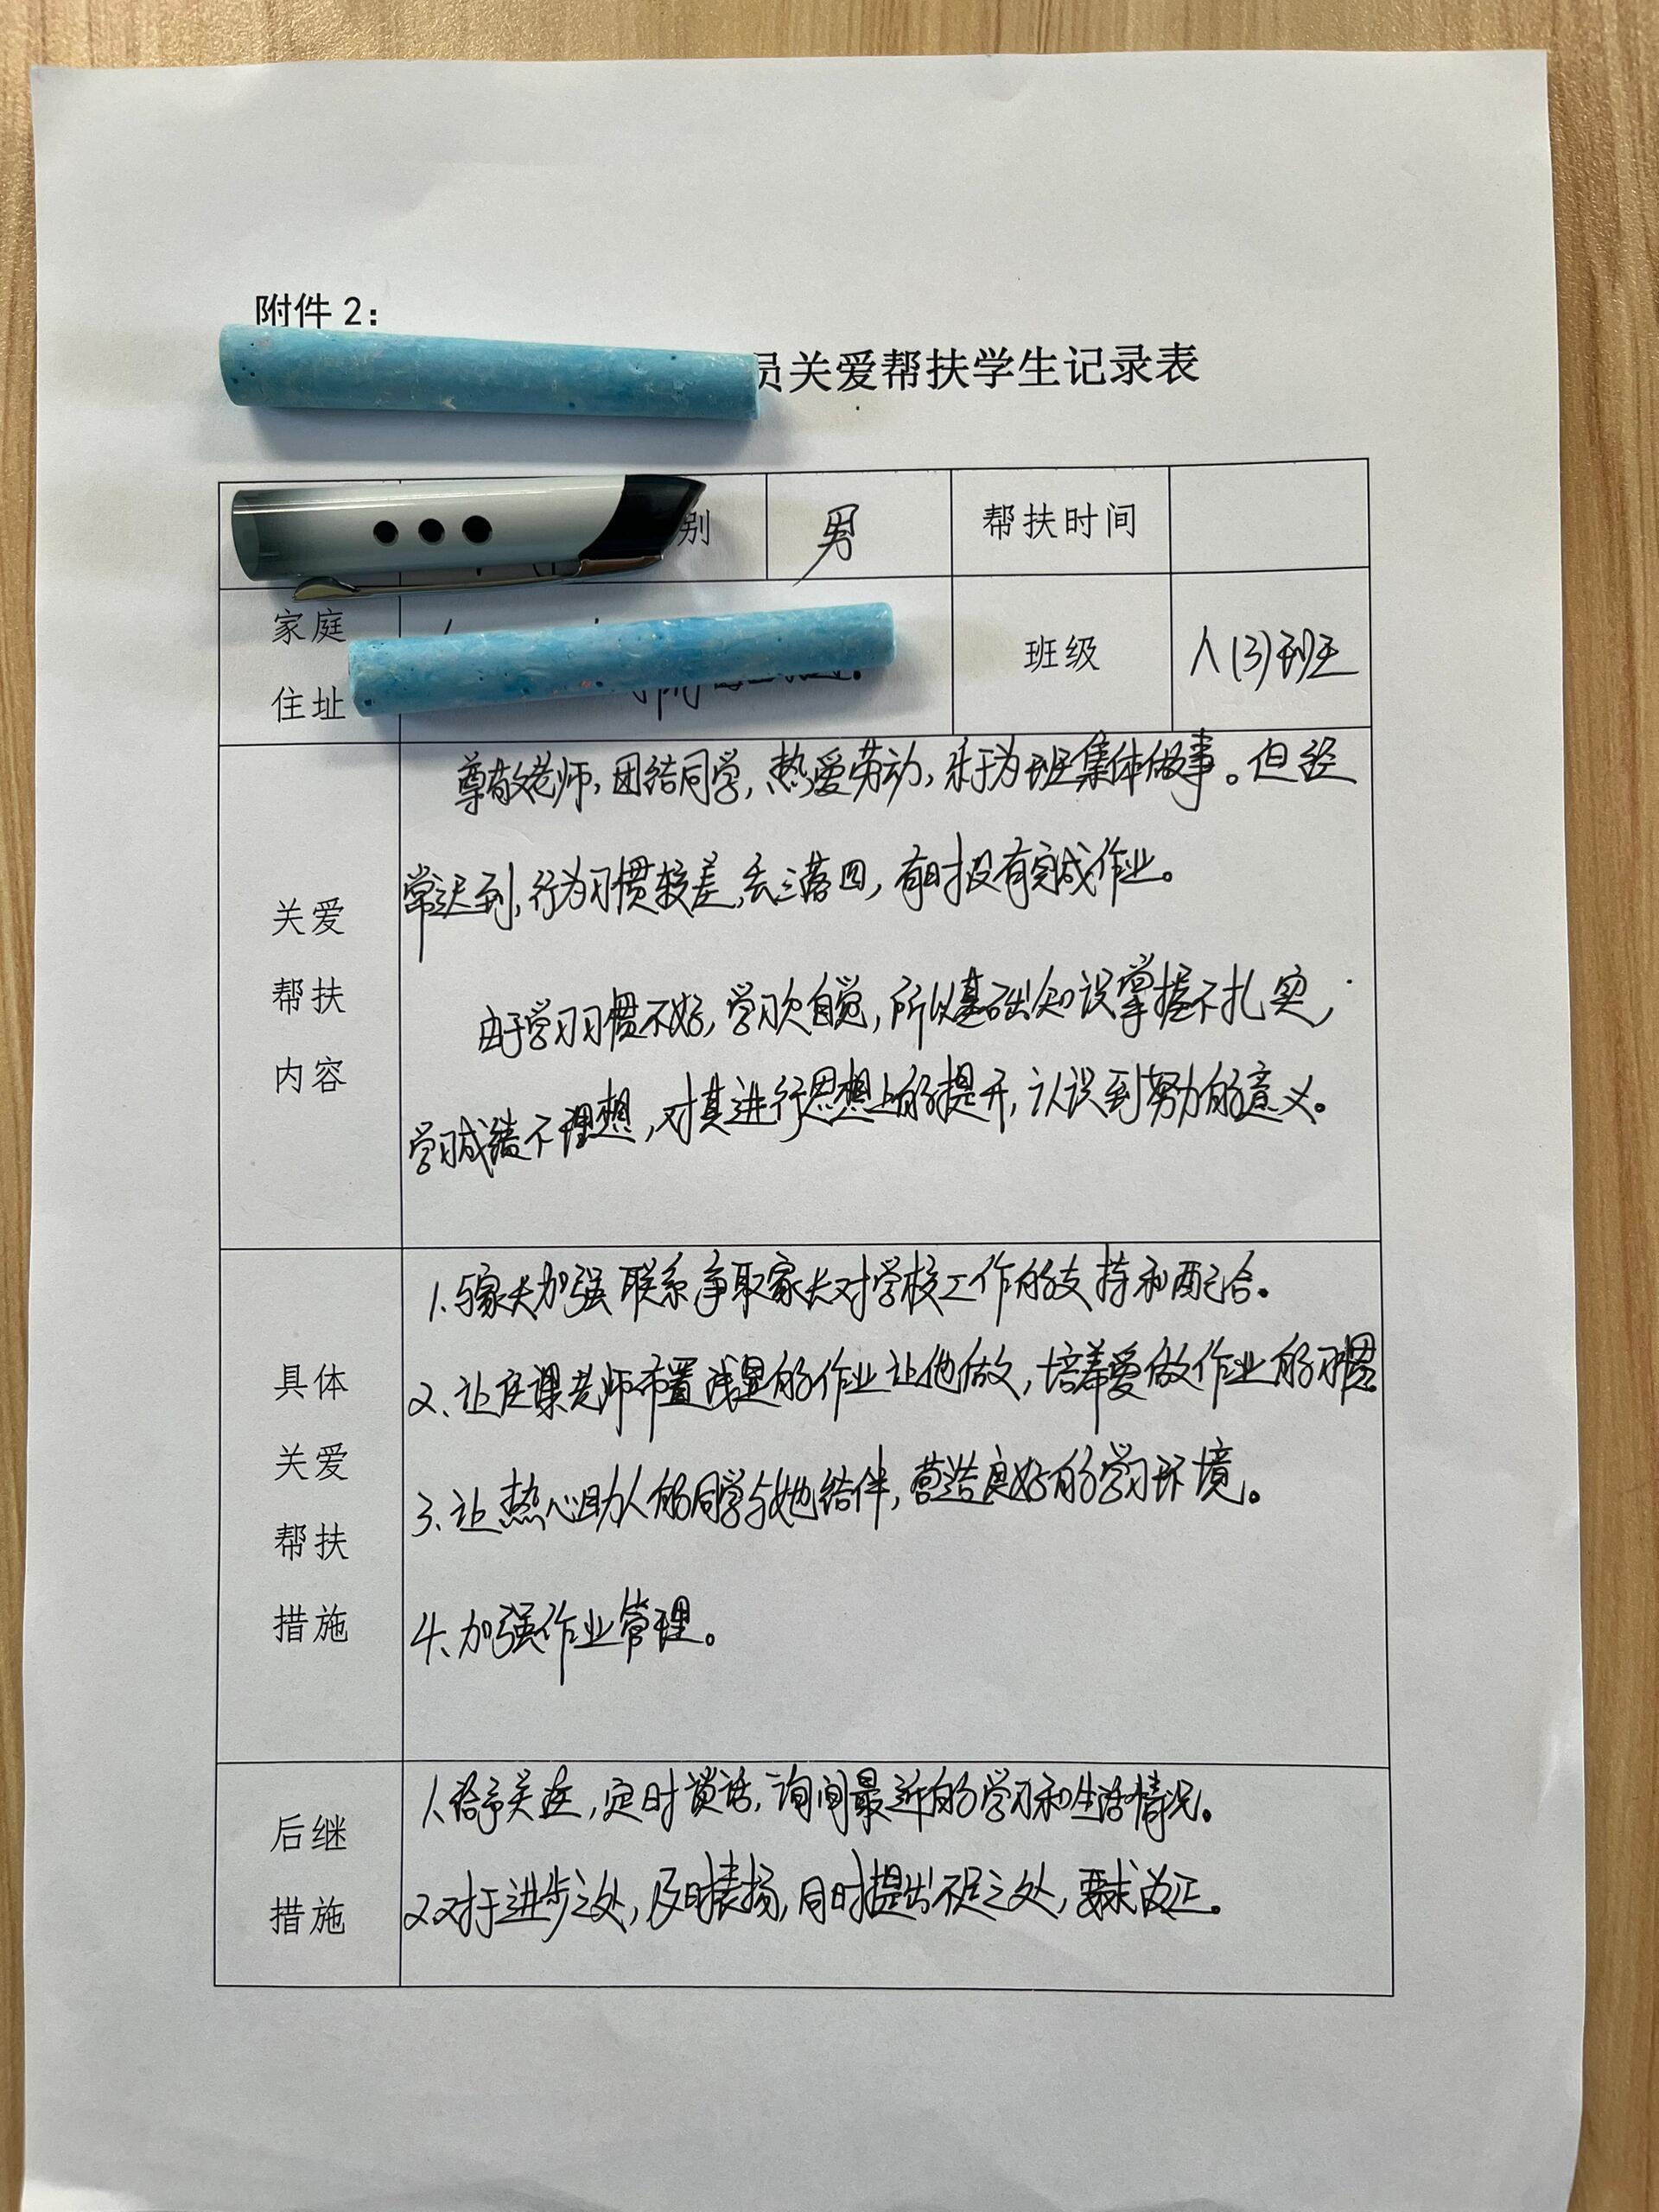 附件 2：
员关爱帮扶学生记录表
别 男 帮扶时间
家庭
住址
班级 八(3)班
尊敬老师，团结同学，热爱劳动，乐于为班集体做事。但经
常迟到，行为习惯较差，丢三落四，有时没有完成作业。
由于学习习惯不好，学习欠自觉，所以基础知识掌握不扎实，
学习成绩不理想，对其进行思想上的提升，认识到努力的意义。
关爱
帮扶
内容
1.与家长加强联系争取家长对学校工作的支持和配合。
2、让任课老师布置浅显的作业让他做，培养爱做作业的习惯
3、让热心助人的同学与她结伴，营造良好的学习环境。
4、加强作业管理。
具体
关爱
帮扶
措施
1、给予关连，定时谈话，询问最近的学习和生活情况。
2、对于进步之处，及时表扬，同时提出不足之处，要求改正。
后继
措施